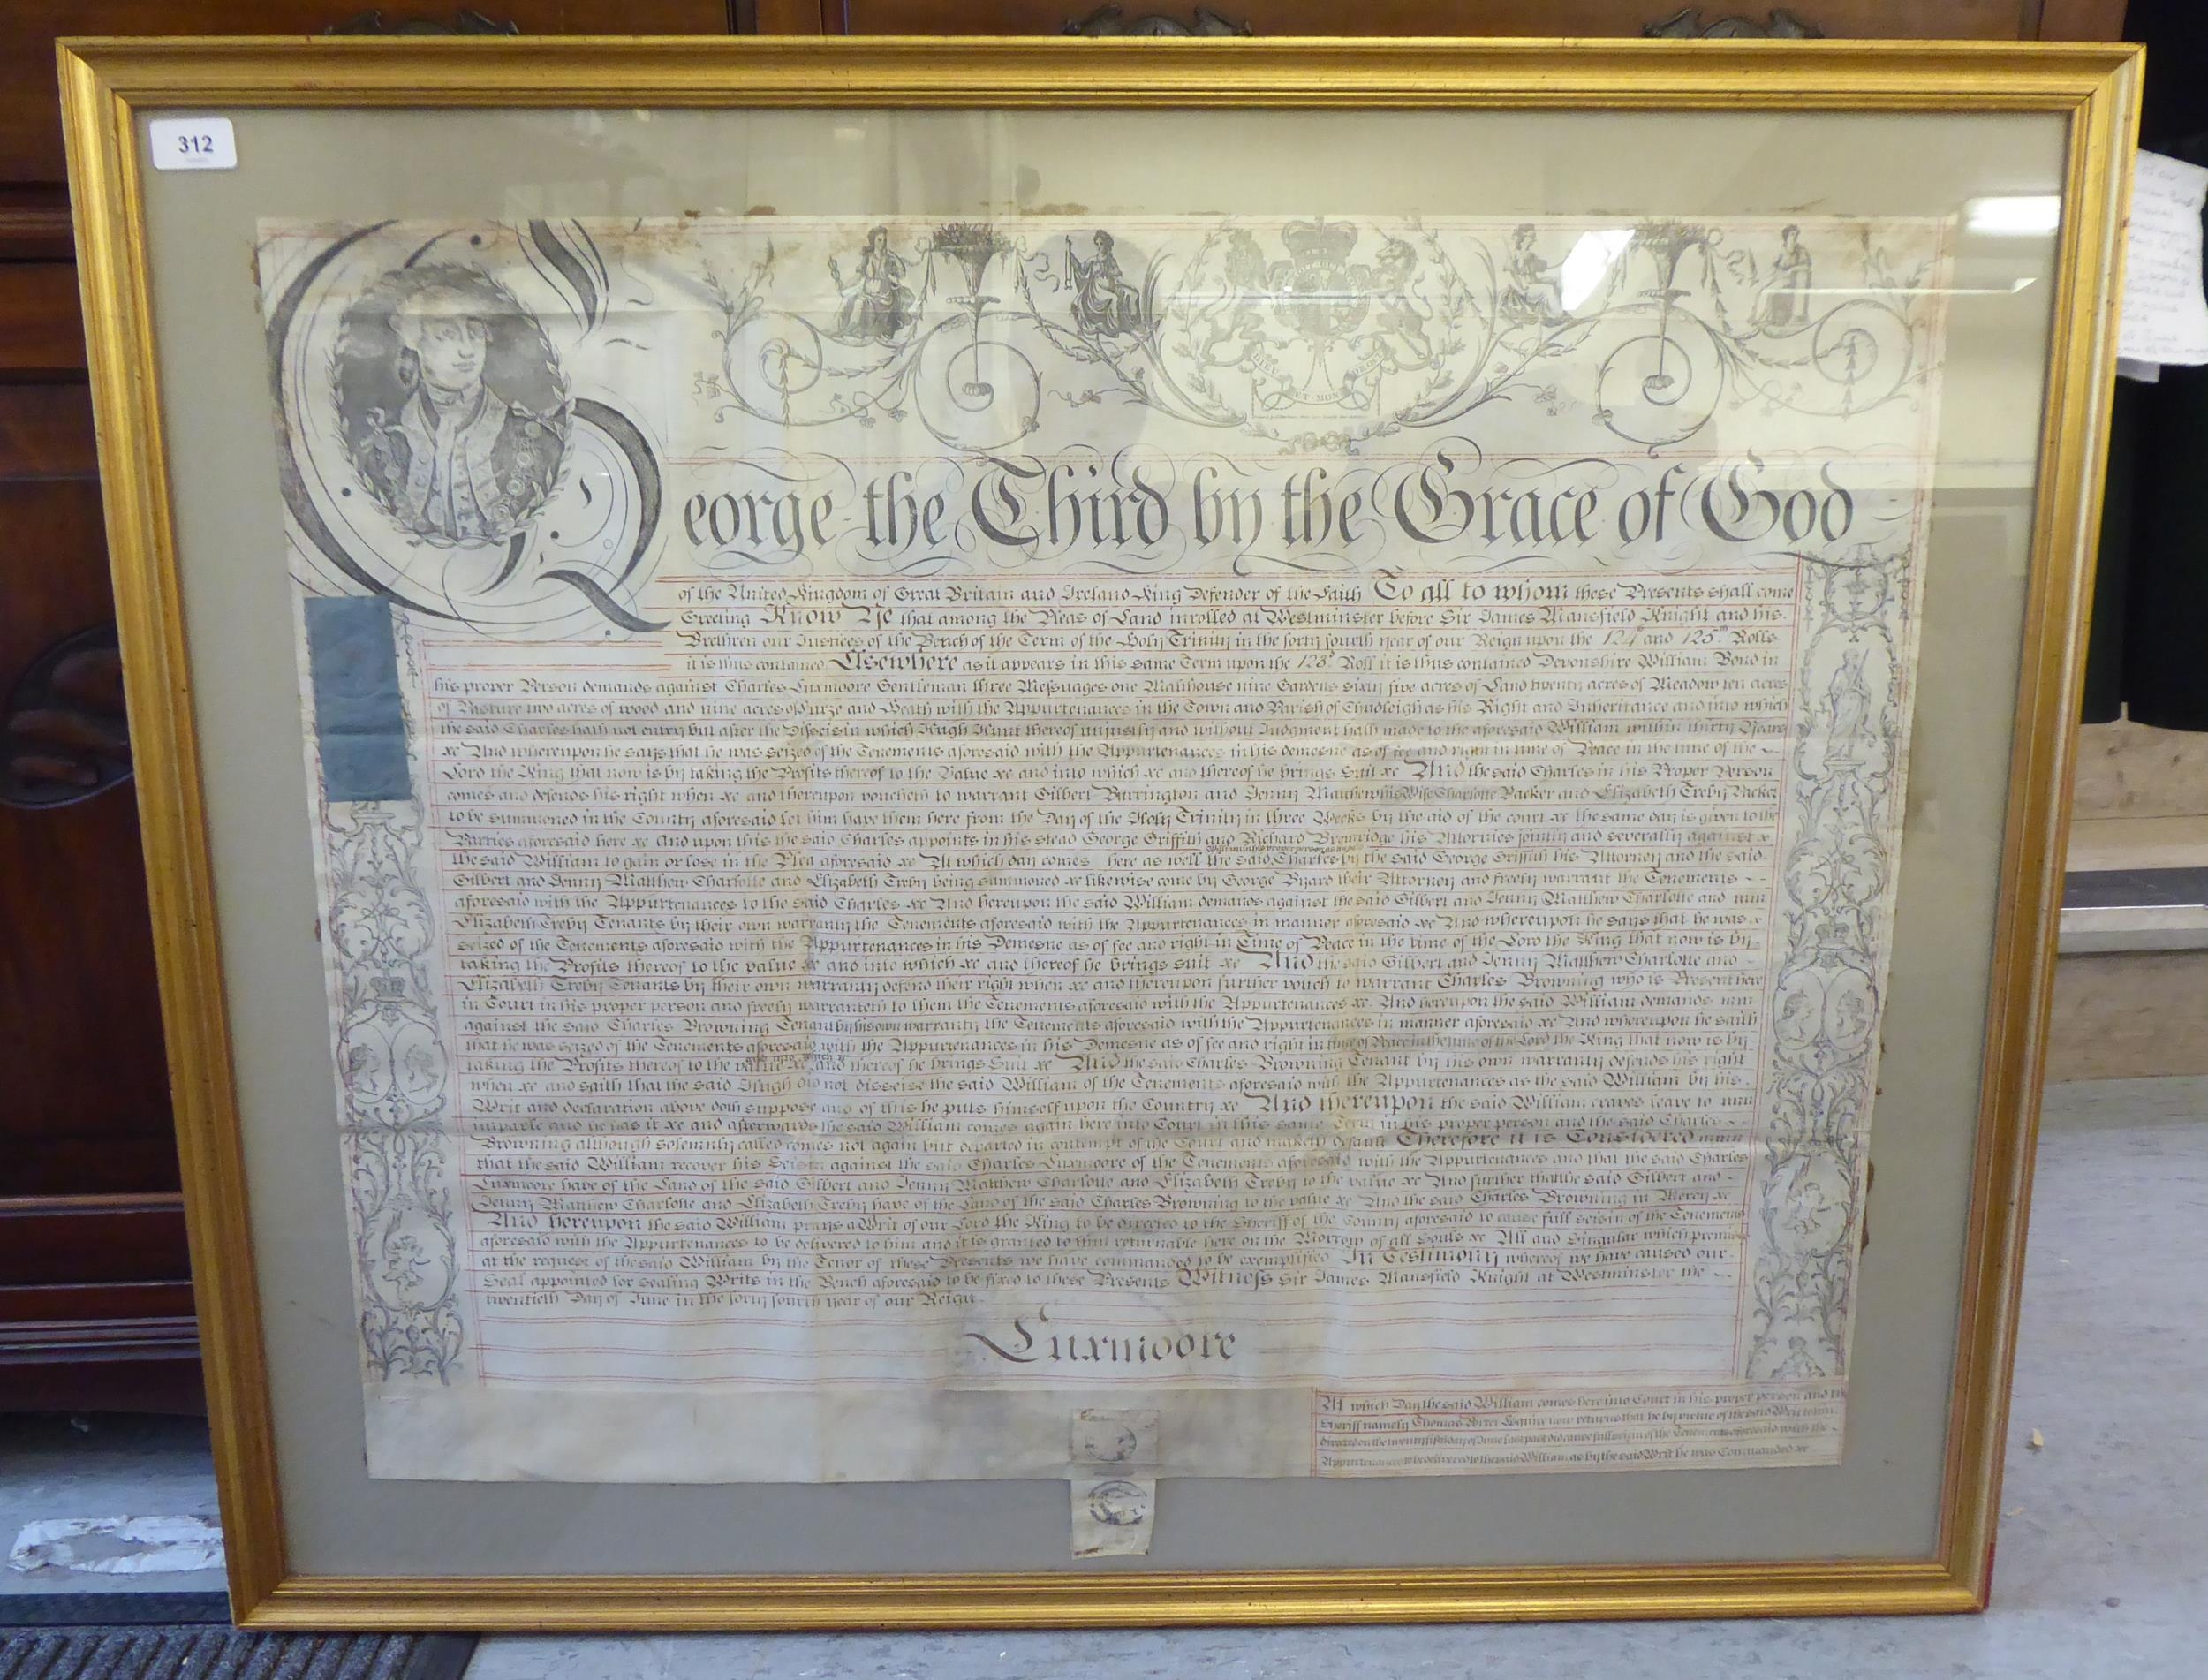 312
DIEU ET MON DROIT
George the Third by the Grace of God
of the United Kingdom of Great Britain and Ireland King Defender of the Faith To all to whom these Presents shall come
Greeting Know Ye that among the Pleas of Land inrolled at Westminster before Sir James Mansfield Knight and his
Brethren our Justices of the Bench of the Term of the Holy Trinity in the forty fourth year of our Reign upon the 124th and 125th Rolls
it is thus contained Elsewhere as it appears in this same Term upon the Roll it is thus contained Devonshire William Bond in
his proper Person demands against Charles Luxmoore Gentleman three Messuages one Malthouse nine Gardens sixty five acres of Land twenty acres of Meadow ten acres
of Pasture two acres of wood and nine acres of Furze and Heath with the Appurtenances in the Town and Parish of Chudleigh as his Right and Inheritance and into which
the said Charles hath not entry but after the Disseisin which Hugh Hunt thereof unjustly and without Judgment hath made to the aforesaid William within thirty Years
&c And whereupon he says that he was seized of the Tenements aforesaid with the Appurtenances in his demesne as of fee and right in time of Peace in the time of the
Lord the King that now is by taking the Profits thereof to the Value &c and into which &c and thereof he brings Suit &c And the said Charles in his Proper Person
comes and defends his right when &c and thereupon voucheth to warrant Gilbert Burrington and Jenny Matthew his Wife Charlotte Packer and Elizabeth Treby Packer
to be summoned in the County aforesaid let him have them here from the Day of the Holy Trinity in three Weeks by the aid of the court &c the same day is given to the
Parties aforesaid here &c And upon this the said Charles appoints in his stead George Griffith and Richard Bremridge his Attornies jointly and severally against
the said William to gain or lose in the Plea aforesaid &c At which day comes here as well William in his proper person as the said Charles by the said George Griffith his Attorney and the said
Gilbert and Jenny Matthew Charlotte and Elizabeth Treby being summoned &c likewise come by George their Attorney and freely warrant the Tenements
aforesaid with the Appurtenances to the said Charles &c And hereupon the said William demands against the said Gilbert and Jenny Matthew Charlotte and
Elizabeth Treby Tenants by their own warranty the Tenements aforesaid with the Appurtenances in manner aforesaid &c And whereupon he says that he was
seized of the Tenements aforesaid with the Appurtenances in his Demesne as of fee and right in Time of Peace in the time of the Lord the King that now is by
taking the Profits thereof to the value &c and into which &c and thereof he brings suit &c And the said Gilbert and Jenny Matthew Charlotte and
Elizabeth Treby Tenants by their own warranty defend their right when &c and thereupon further vouch to warrant Charles Browning who is Present here
in Court in his proper person and freely warranteth to them the Tenements aforesaid with the Appurtenances &c And hereupon the said William demands
against the said Charles Browning Tenant by his own warranty the Tenements aforesaid with the Appurtenances in manner aforesaid &c And whereupon he saith
that he was seized of the Tenements aforesaid with the Appurtenances in his Demesne as of fee and right in time of Peace in the time of the Lord the King that now is by
taking the Profits thereof to the value &c and into which &c and thereof he brings Suit &c And the said Charles Browning Tenant by his own warranty defends his right
when &c and saith that the said Hugh did not disseise the said William of the Tenements aforesaid with the Appurtenances as the said William by his
Writ and declaration above doth suppose and of this he puts himself upon the Country &c And thereupon the said William craves leave to
imparle and he has it &c and afterwards the said William comes again here into Court in this same Term in his proper person and the said Charles
Browning although solemnly called comes not again but departed in contempt of the Court and maketh default Therefore it is Considered
that the said William recover his Seisin against the said Charles Luxmoore of the Tenements aforesaid with the Appurtenances and that the said Charles
Luxmoore have of the Land of the said Gilbert and Jenny Matthew Charlotte and Elizabeth Treby to the value &c And further that the said Gilbert and
Jenny Matthew Charlotte and Elizabeth Treby have of the Land of the said Charles Browning to the value &c And the said Charles Browning in Mercy &c
And hereupon the said William prays a Writ of our Lord the King to be directed to the Sheriff of the County aforesaid to cause full seisin of the Tenements
aforesaid with the Appurtenances to be delivered to him and it is granted to him returnable here on the Morrow of all Souls &c All and Singular which premises
at the request of the said William by the Tenor of these Presents we have commanded to be exemplified In Testimony whereof we have caused our
Seal appointed for sealing Writs in the Bench aforesaid to be fixed to these Presents Witness Sir James Mansfield Knight at Westminster the
twentieth Day of June in the forty fourth year of our Reign
Luxmoore
At which Day the said William comes here into Court in his proper person and the
Sheriff namely Thomas Esquire now returns that he by virtue of the said Writ to him
directed on the twenty first day of June last past did cause full seisin of the Tenements aforesaid with the
Appurtenances to be delivered to the said William as by the said Writ he was Commanded &c